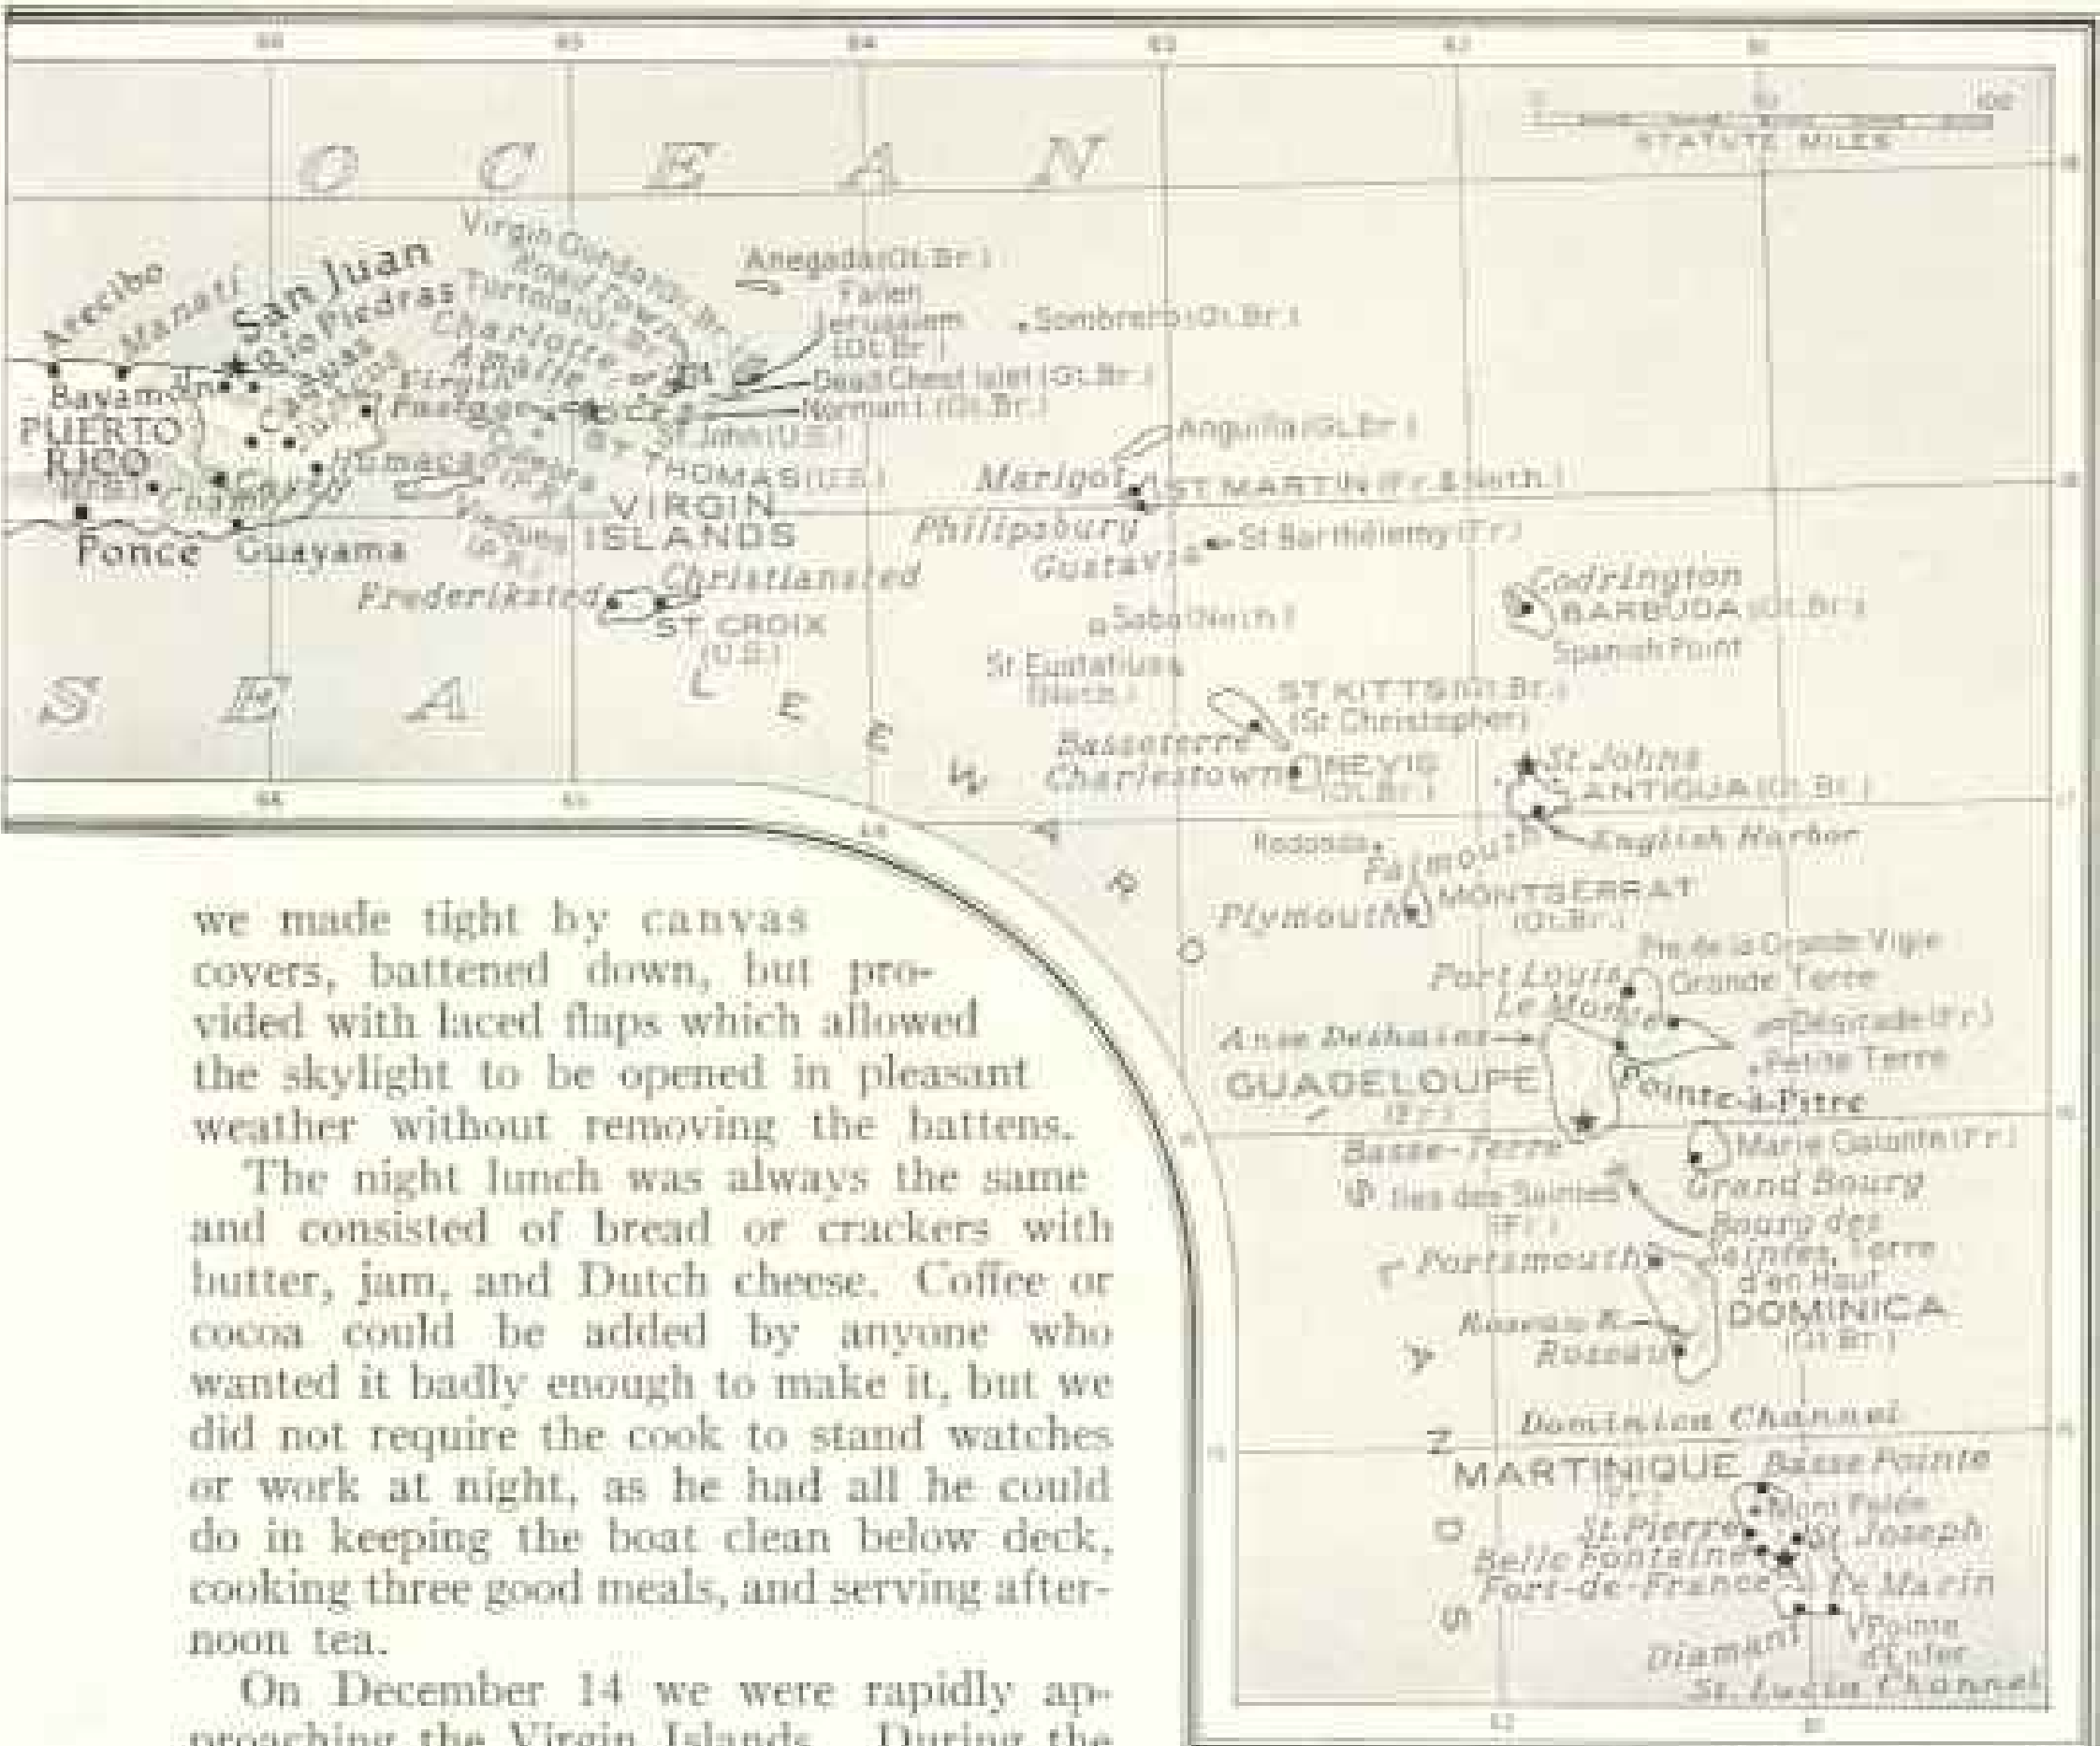 66 65 64 63 62 61
0 50 100
STATUTE MILES
OCEAN
Arecibo
Manati
San Juan
Rio Piedras
Bayamon
PUERTO
RICO
Ponce
Guayama
Humacao
Road Town
Charlotte
Amalie
Virgin
Passage
Anegada (Gt. Br.)
Fallen
Jerusalem
(Gt. Br.)
Sombrero (Gt. Br.)
Dead Chest Islet (Gt. Br.)
Norman I. (Gt. Br.)
St. John (U.S.)
ST. THOMAS (U.S.)
VIRGIN
ISLANDS
Frederiksted
Christiansted
ST. CROIX
(U.S.)
SEA
LEEWARD
ISLANDS
Anguilla (Gt. Br.)
Marigot
ST. MARTIN (Fr. & Neth.)
Philipsburg
Gustavia
St. Barthélemy (Fr.)
Saba (Neth.)
St. Eustatius
(Neth.)
Codrington
BARBUDA (Gt. Br.)
Spanish Point
ST. KITTS (Gt. Br.)
(St. Christopher)
Basseterre
Charlestown
NEVIS
(Gt. Br.)
St. Johns
ANTIGUA (Gt. Br.)
English Harbor
Falmouth
Redonda
MONTSERRAT
(Gt. Br.)
Plymouth
Pte. de la Grande Vigie
Port Louis
Grande Terre
Le Moule
Desirade (Fr.)
Anse Deshaies
Petite Terre
GUADELOUPE
(Fr.)
Pointe-à-Pitre
Basse-Terre
Marie Galante (Fr.)
Grand Bourg
Iles des Saintes
(Fr.)
Bourg des
Saintes, Terre
d'en Haut
Portsmouth
DOMINICA
(Gt. Br.)
Roseau R.
Roseau
Dominica Channel
MARTINIQUE
(Fr.)
Basse Pointe
Mont Pelée
St. Pierre
St. Joseph
Belle Fontaine
Fort-de-France
Le Marin
Diamant
Pointe
d'Enfer
St. Lucia Channel
we made tight by canvas
covers, battened down, but pro-
vided with laced flaps which allowed
the skylight to be opened in pleasant
weather without removing the battens.
The night lunch was always the same
and consisted of bread or crackers with
butter, jam, and Dutch cheese. Coffee or
cocoa could be added by anyone who
wanted it badly enough to make it, but we
did not require the cook to stand watches
or work at night, as he had all he could
do in keeping the boat clean below deck,
cooking three good meals, and serving after-
noon tea.
On December 14 we were rapidly ap-
proaching the Virgin Islands. During the